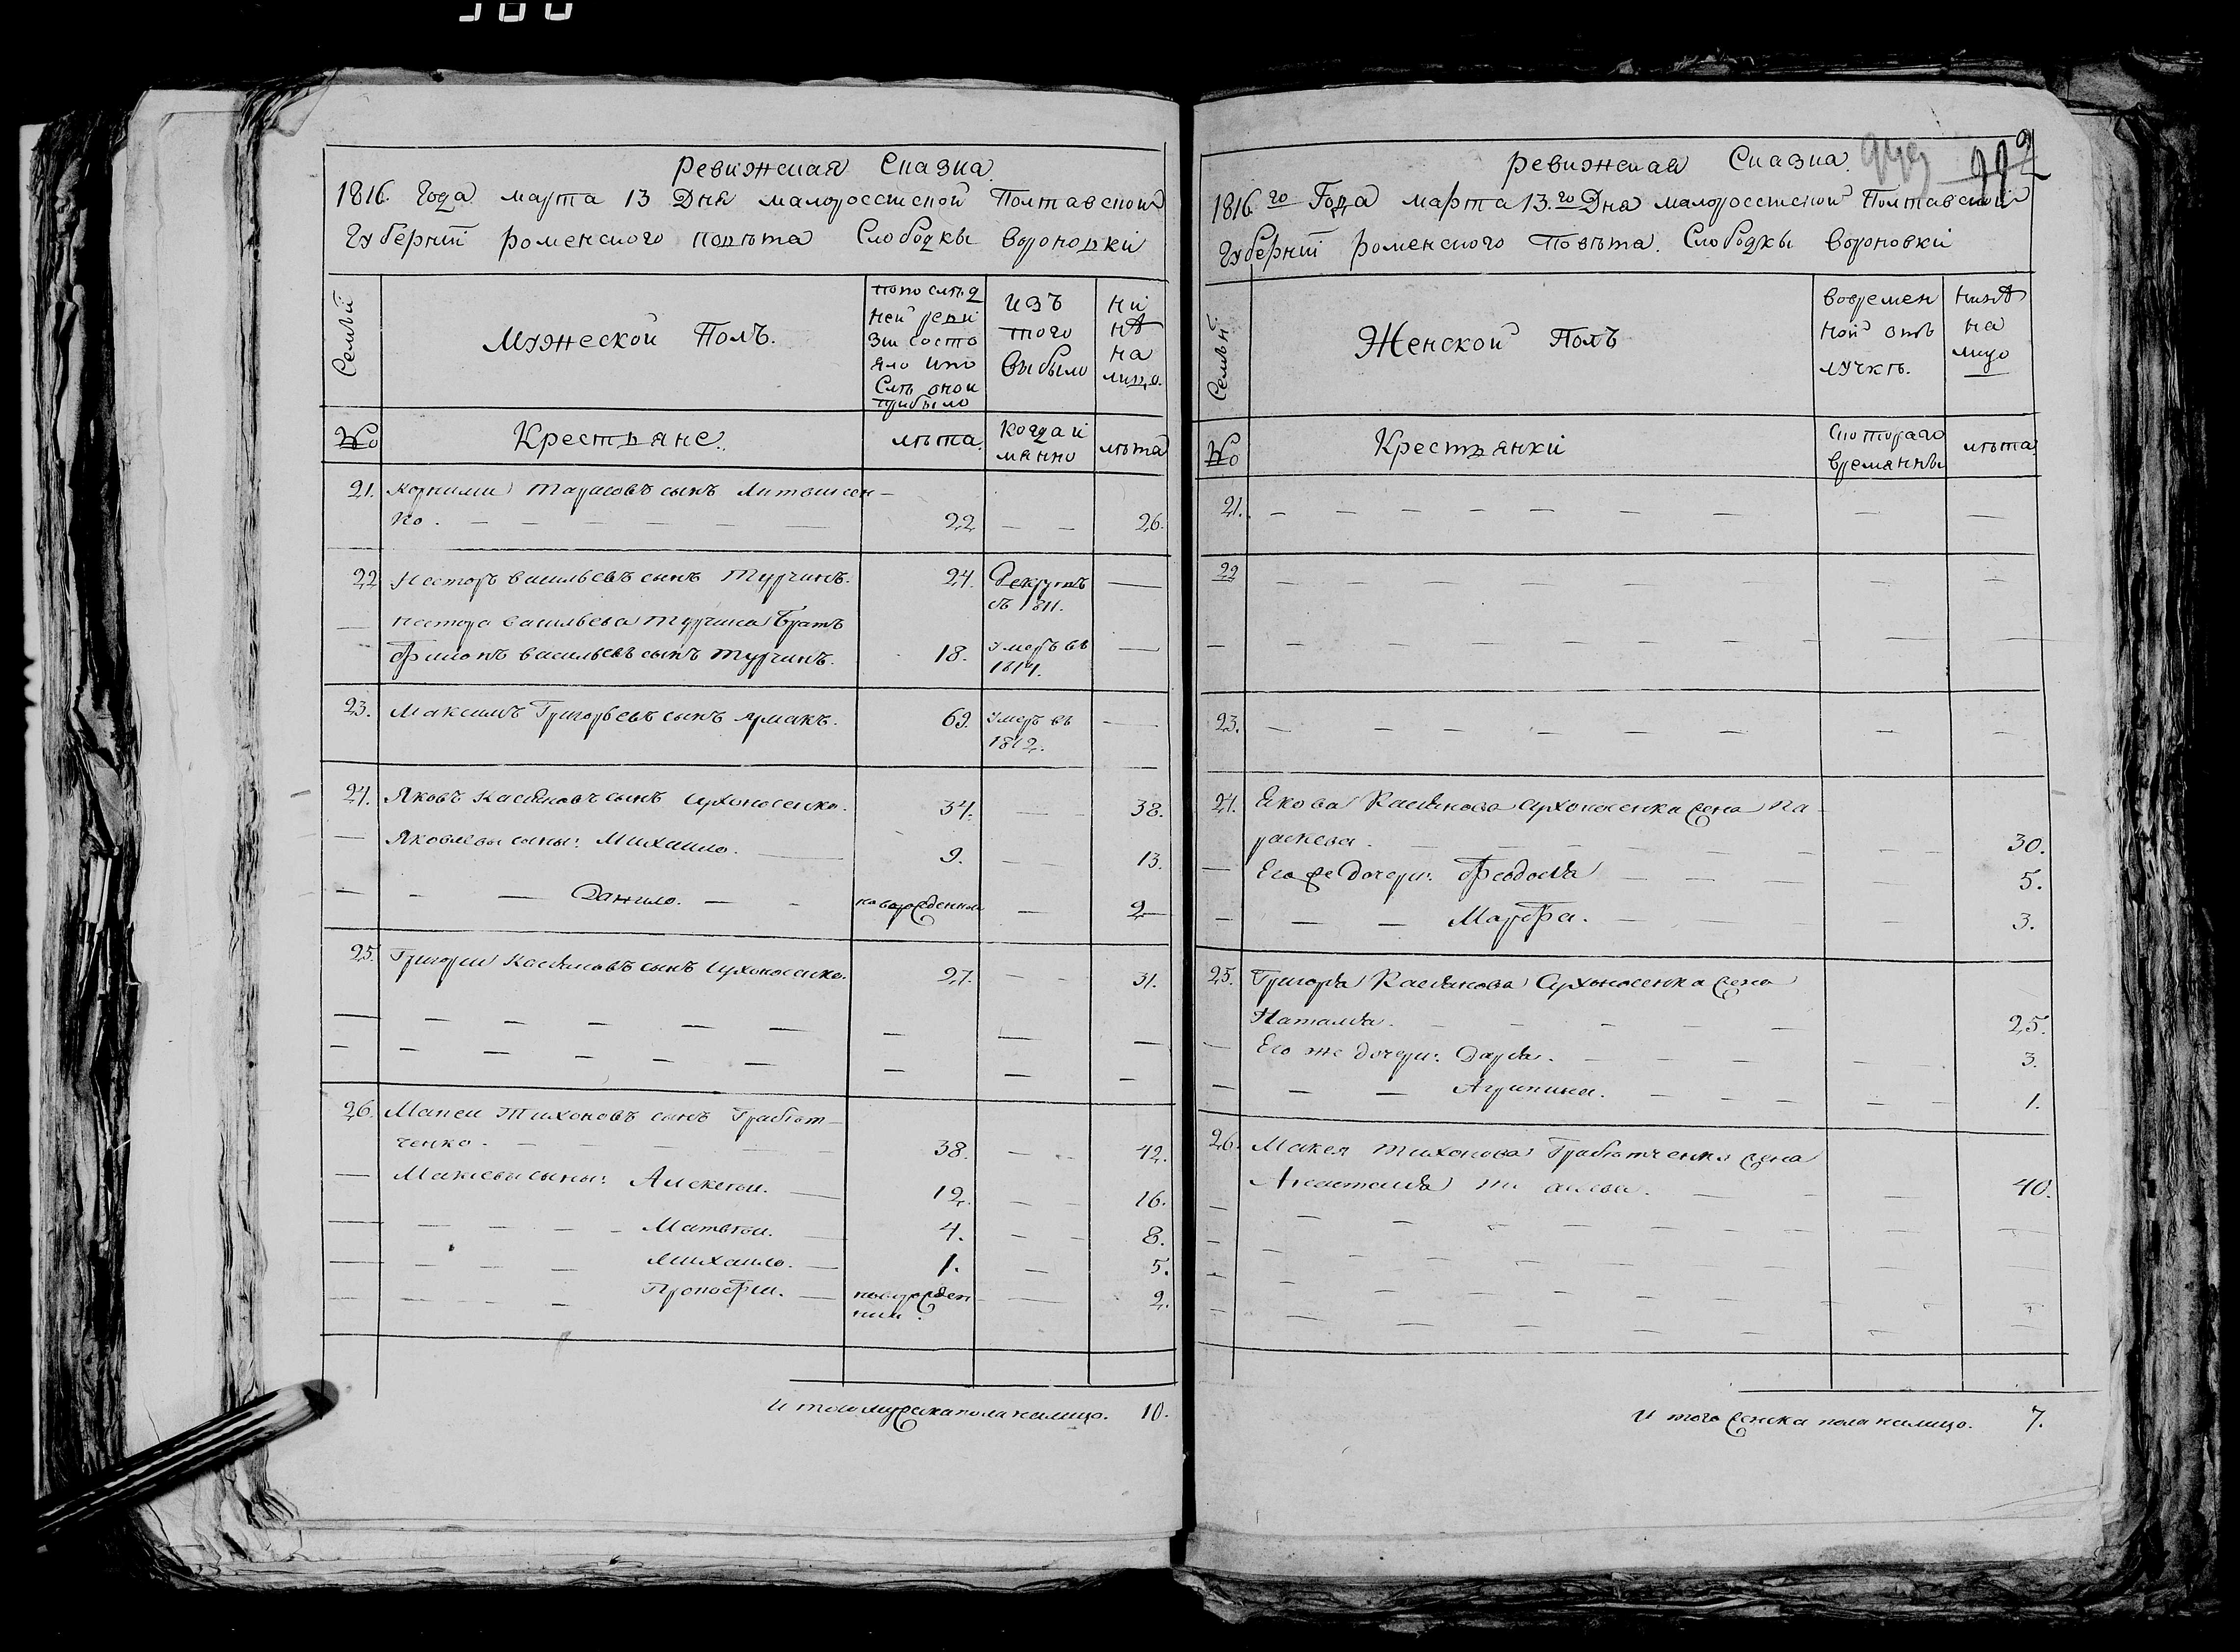 Ревижская Сказка.
1816. Года марта 13 Дня малоросстской Полтавской
Губернїи роменского повѣта Слободки вороновки
Семьи
Мужеской Полъ.
попослѣд
ней реви
зіи состо
яло ипо
слѣ оной
прибыло
изъ
того
выбыло
ни
нѣ
на
лицо.
№
Крестьяне.
лѣта
когдаи
мянно
лѣта
21. Корнилий Тарасовъ сынъ
ко. 22 26.
22 Несторъ васильевъ сынъ Турчинъ. 24. Рекрутъ
въ 1811.
нестора васильева Турчина братъ
Филионъ васильевъ сынъ Турчинъ. 18. умеръ въ
1814.
23. Максимъ Григорьевъ сынъ ярмакъ. 69. умеръ въ
1812.
24. Яковъ Касіяновъ сынъ Сухоносенко. 34. 38.
Яковлевы сыны: Михаило. 9. 13.
Данило. новорожденный 2
25. Григорий Касіяновъ сынъ Сухоносенко. 27. 31.
26. Макей Тихоновъ сынъ Граблют
ченко. 38. 42.
Макеевы сыны: Алексѣй. 12. 16.
Матвѣй. 4. 8.
Михаило. 1. 5.
Прокофий. новорожден
ний. 2.
И того мужска пола налицо. 10.
Ревижская Сказка.
1816.го Года марта 13.го Дня малоросстской Полтавской
Губернїи роменского Повѣта. Слободки вороновки
Семьи.
Женской Полъ
вовремен
ной отъ
лучкѣ.
нинѣ
на
лицо
№
Крестьянки
Скоторого
времянны
лѣта
21.
22
23.
24. Якова Касіянова Сухоносенка жена Па
раскева. 30.
Его же дочери: Феодосія 5.
Марфа. 3.
25. Григорія Касіянова Сухоносенка жена
Наталія. 25.
Его же дочери: Дарія. 3.
Агрипина. 1.
26. Макея Тихонова Граблютченка жена
40.
И того женска пола налицо. 7.